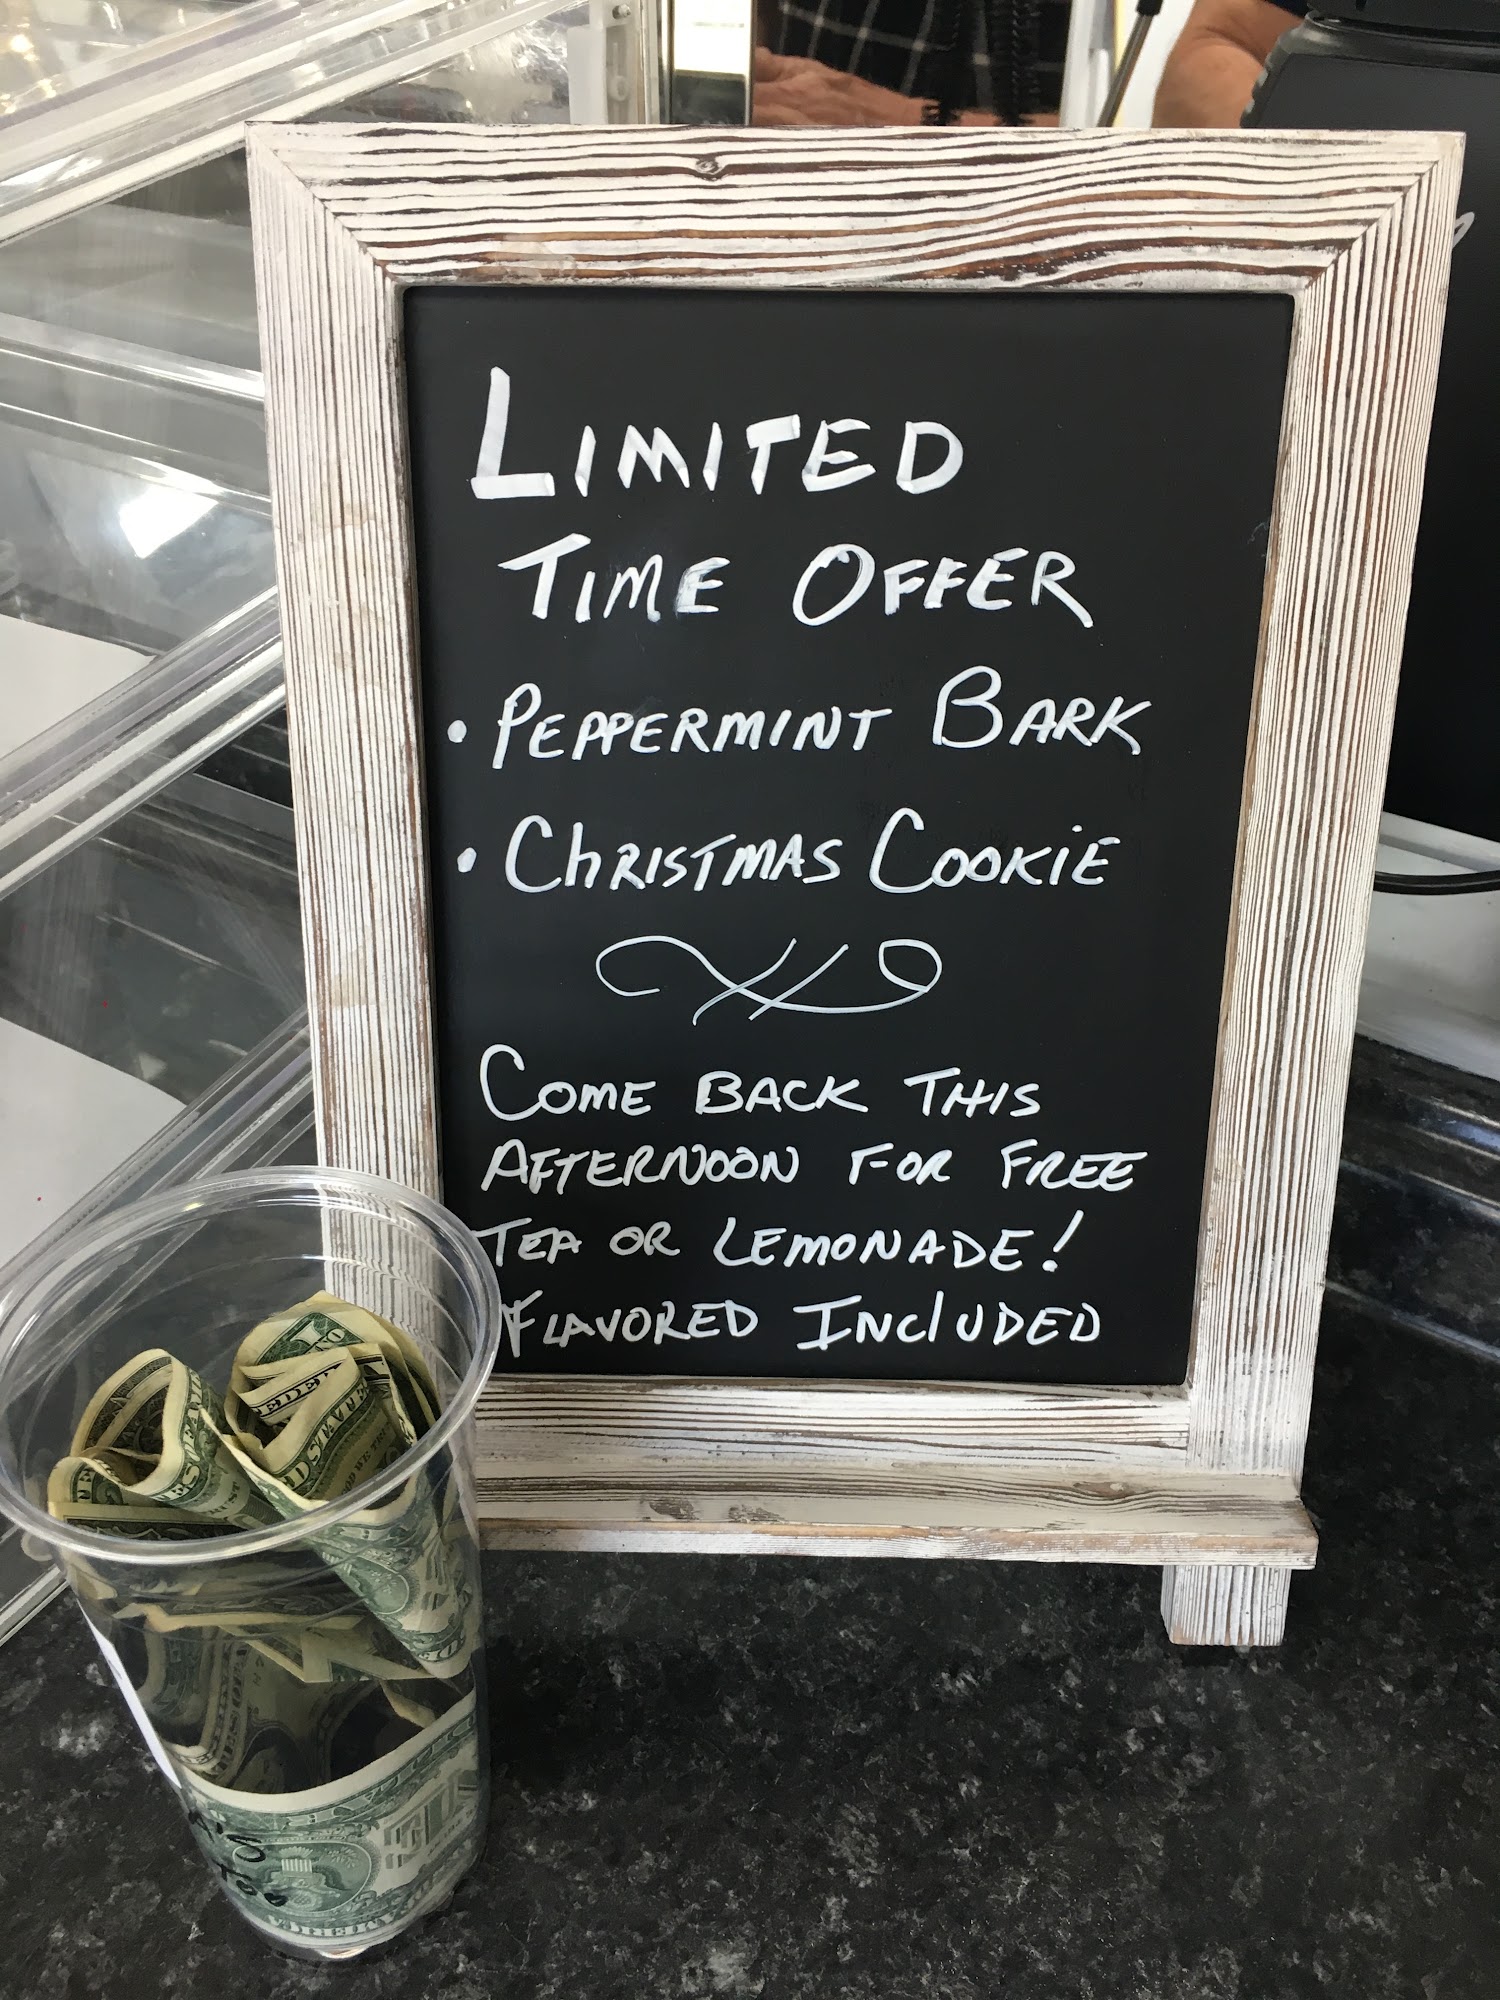 LIMITED
TIME OFFER
• PEPPERMINT BARK
• ChRISTMAS COOKiE
COME BACK THIS
AFTERNOON FOR FREE
TEA OR LEMONADE!
FLAVORED INClUDED